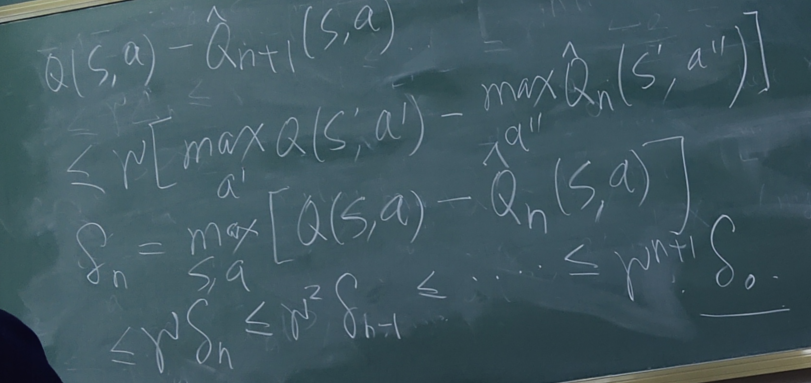 Q(S,a) - Q̂ₙ₊₁(S,a)
≤ γ[max_{a'} Q(S',a') - max_{a''} Q̂ₙ(S',a'')]
δₙ = max_{S,a} [Q(S,a) - Q̂ₙ(S,a)]
≤ γδₙ ≤ γ²δₙ₋₁ ≤ ..... ≤ γⁿ⁺¹ δ₀.